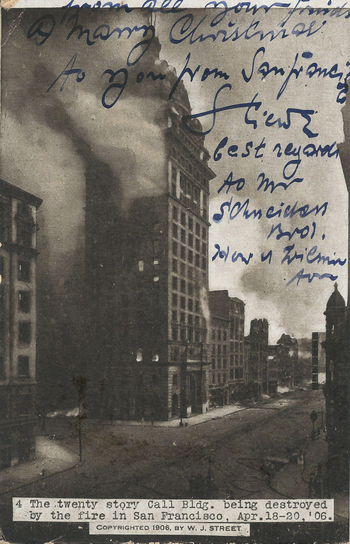 from all your friends
A Marry Christmas
to you from Sanfrancis
best regards
to Mr
Schneider
Brol.
4 The twenty story Call Bldg. being destroyed
by the fire in San Francisco, Apr.18-20,'06.
COPYRIGHTED 1906, BY W. J. STREET